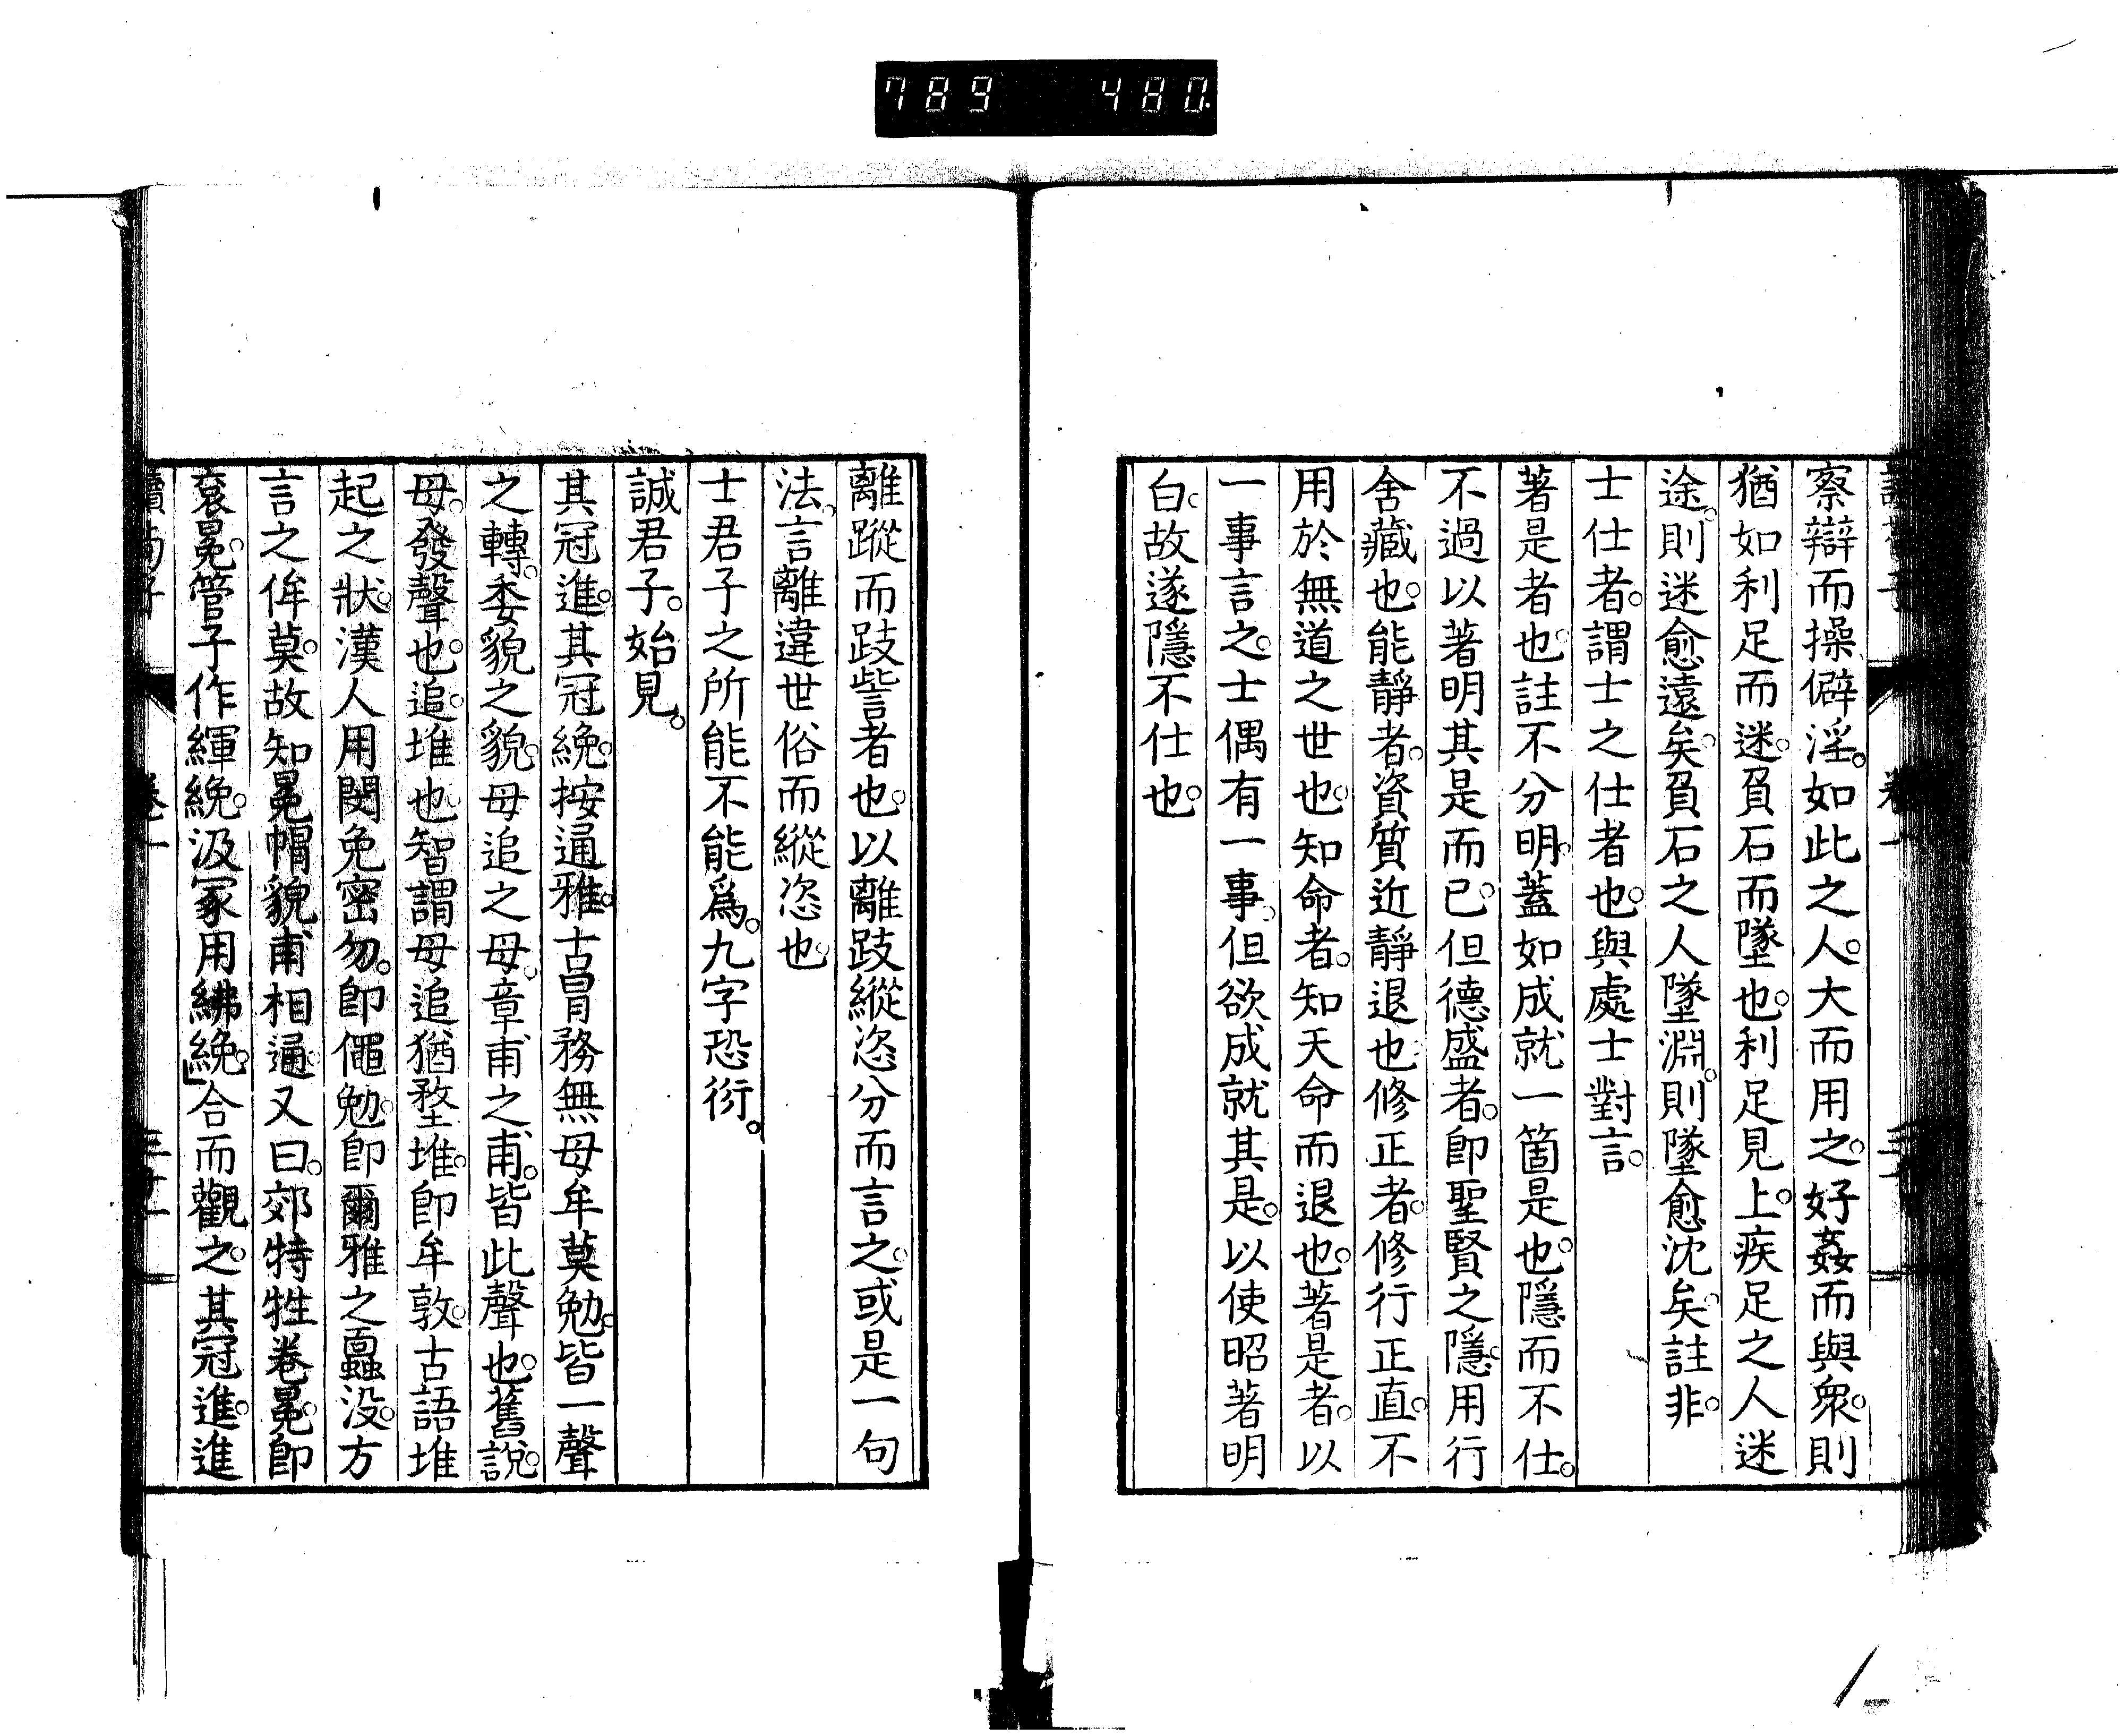 789 480
察辯而操僻淫。如此之人。大而用之。好姦而與衆。則
猶如利足而迷。負石而墜也。利足見上。疾足之人迷
途。則迷愈遠矣。負石之人墜淵。則墜愈沈矣。註非。
士仕者。謂士之仕者也。與處士對言。
著是者也。註不分明。蓋如成就一箇是也。隱而不仕。
不過以著明其是而已。但德盛者。卽聖賢之隱。用行
舍藏也。能靜者。資質近靜退也。修正者。修行正直。不
用於無道之世也。知命者。知天命而退也。著是者。以
一事言之。士偶有一事。但欲成就其是。以使昭著明
白。故遂隱不仕也。
離蹤而跂訾者也。以離跂縱恣分而言之。或是一句
法。言離違世俗而縱恣也。
士君子之所能不能爲。九字恐衍。
誠君子。始見。
其冠進。其冠絻。按通雅。古冐務無毋牟莫勉。皆一聲
之轉。委貌之貌。毋追之毋。章甫之甫。皆此聲也。舊說。
毋。發聲也。追。堆也。智謂毋追猶堥堆。卽牟敦。古語堆
起之狀。漢人用閔免密勿。卽僶勉。卽爾雅之蠠没。方
言之侔莫。故知冕帽貌甫相通。又曰。郊特牲卷冕。卽
袞冕。管子作緷絻。汲冢用紼絻。」合而觀之。其冠進。進
讀荀子 卷一